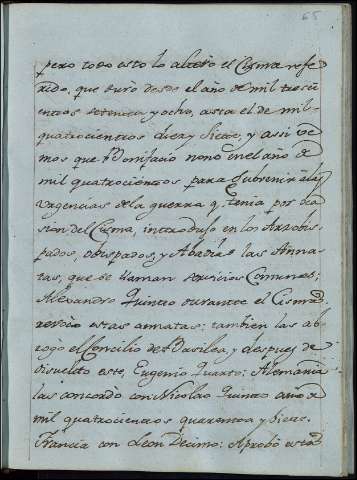 65
pero todo esto lo alteró el Cisma refe-
rido, que duró desde el año de mil trescι
entos setenta y ocho, asta el de mil
quatrocientos diez y Siete, y assi ve-
mos que Bonifacio nono en el año de
mil quatrocientos para Subvenir à las
Urgencias de la guerra q. tenia por oca
sion del Cisma, introdujo en los Arzobis
pados, obispados, y Abadias las Anna-
tas, que se llaman servicios Comunes;
Alexandro Quinto durante el Cisma
estas annatas: tambien las ab-
rogó el Concilio de Basilea, y despues de
disuelto este, Eugenio Quarto: Alemania
las concordó con Nicolao Quinto año de
mil quatrocientos quarenta y Siete:
Francia con Leon Decimo: Aprobó esta